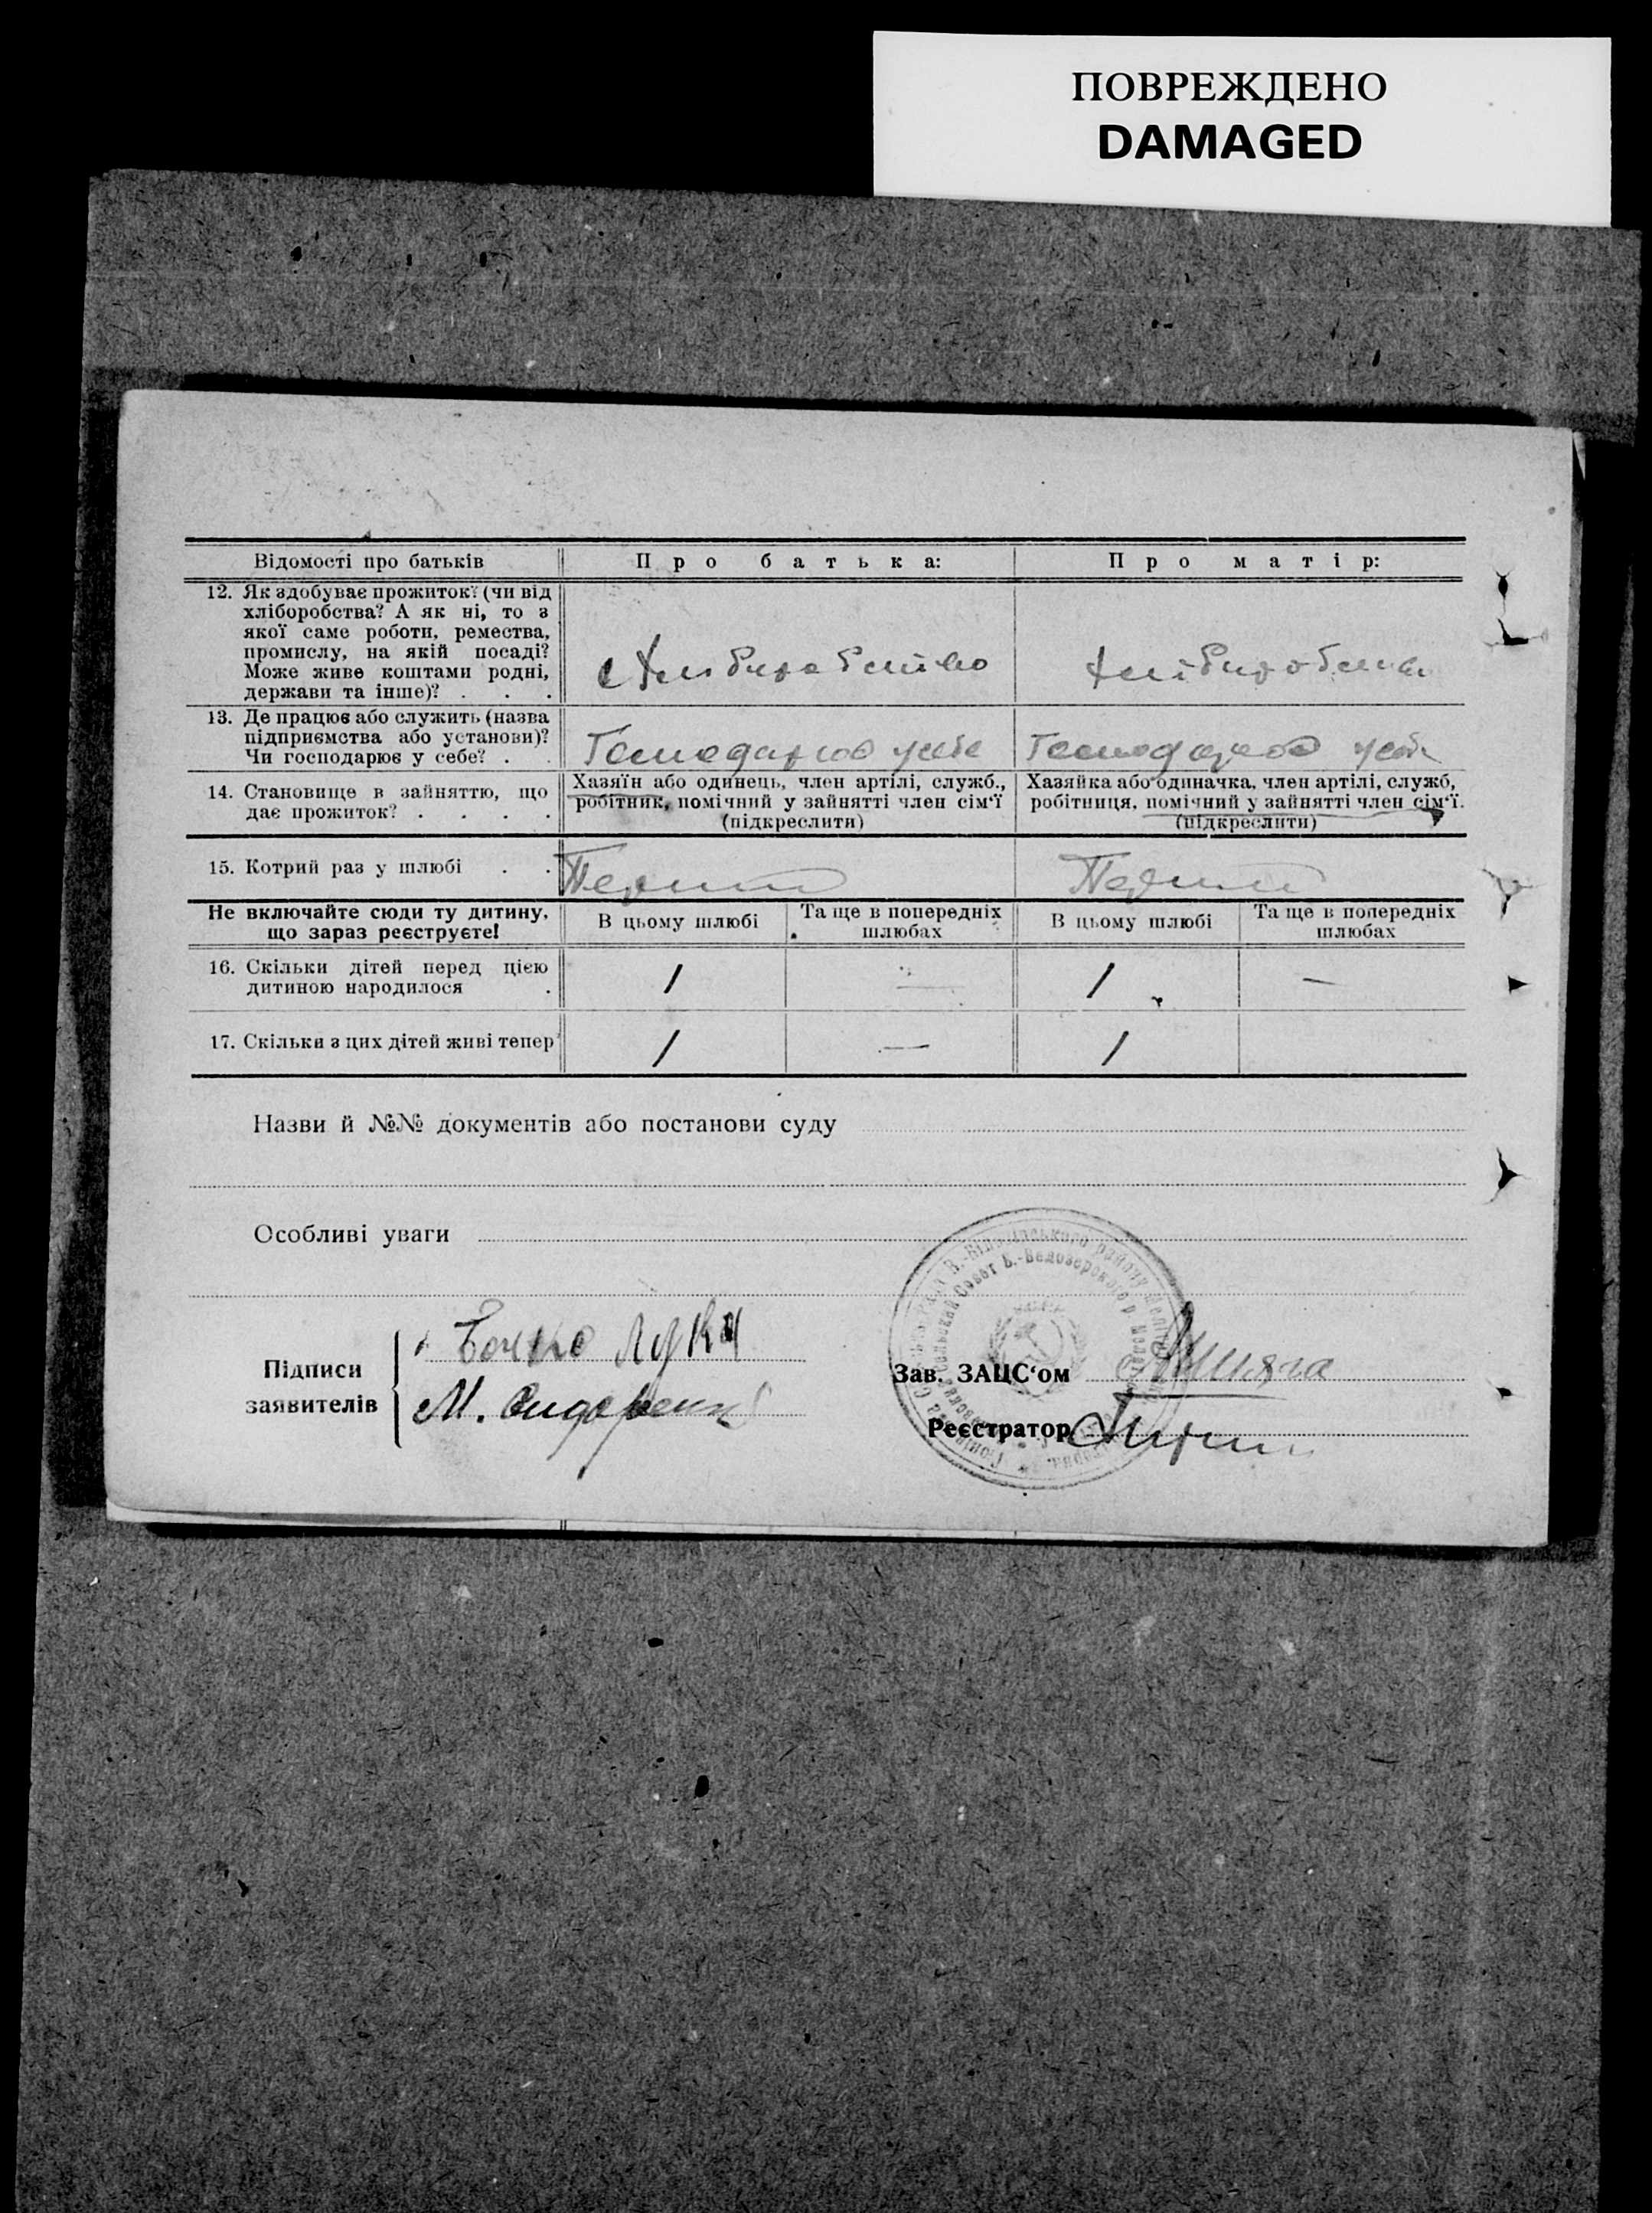 ПОВРЕЖДЕНО
DAMAGED
Відомості про батьків
Про батька:
Про матір:
12. Як здобуває прожиток? (чи від
хліборобства? А як ні, то з
якої саме роботи, ремества,
промислу, на якій посаді?
Може живе коштами родні,
держави та інше)? . . .
13. Де працює або служить (назва
підприємства або установи)?
Чи господарює у себе? .
Господарює у себе
Господарює у себе
14. Становище в зайняттю, що
дає прожиток? . . . .
Хазяїн або одинець, член артілі, служб.,
робітник, помічний у зайнятті член сім'ї
(підкреслити)
Хазяйка або одиначка, член артілі, служб,
робітниця, помічний у зайнятті член сім'ї.
(підкреслити)
15. Котрий раз у шлюбі . .
Не включайте сюди ту дитину,
що зараз реєструєте!
В цьому шлюбі
Та ще в попередніх
шлюбах
В цьому шлюбі
Та ще в попередніх
шлюбах
16. Скільки дітей перед цією
дитиною народилося .
1
—
1
—
17. Скільки з цих дітей живі тепер
1
—
1
Назви й №№ документів або постанови суду
Особливі уваги
Підписи
заявителів
Бочко Лука
М. Сидоренко
Зав. ЗАЦС'ом
Реєстратор